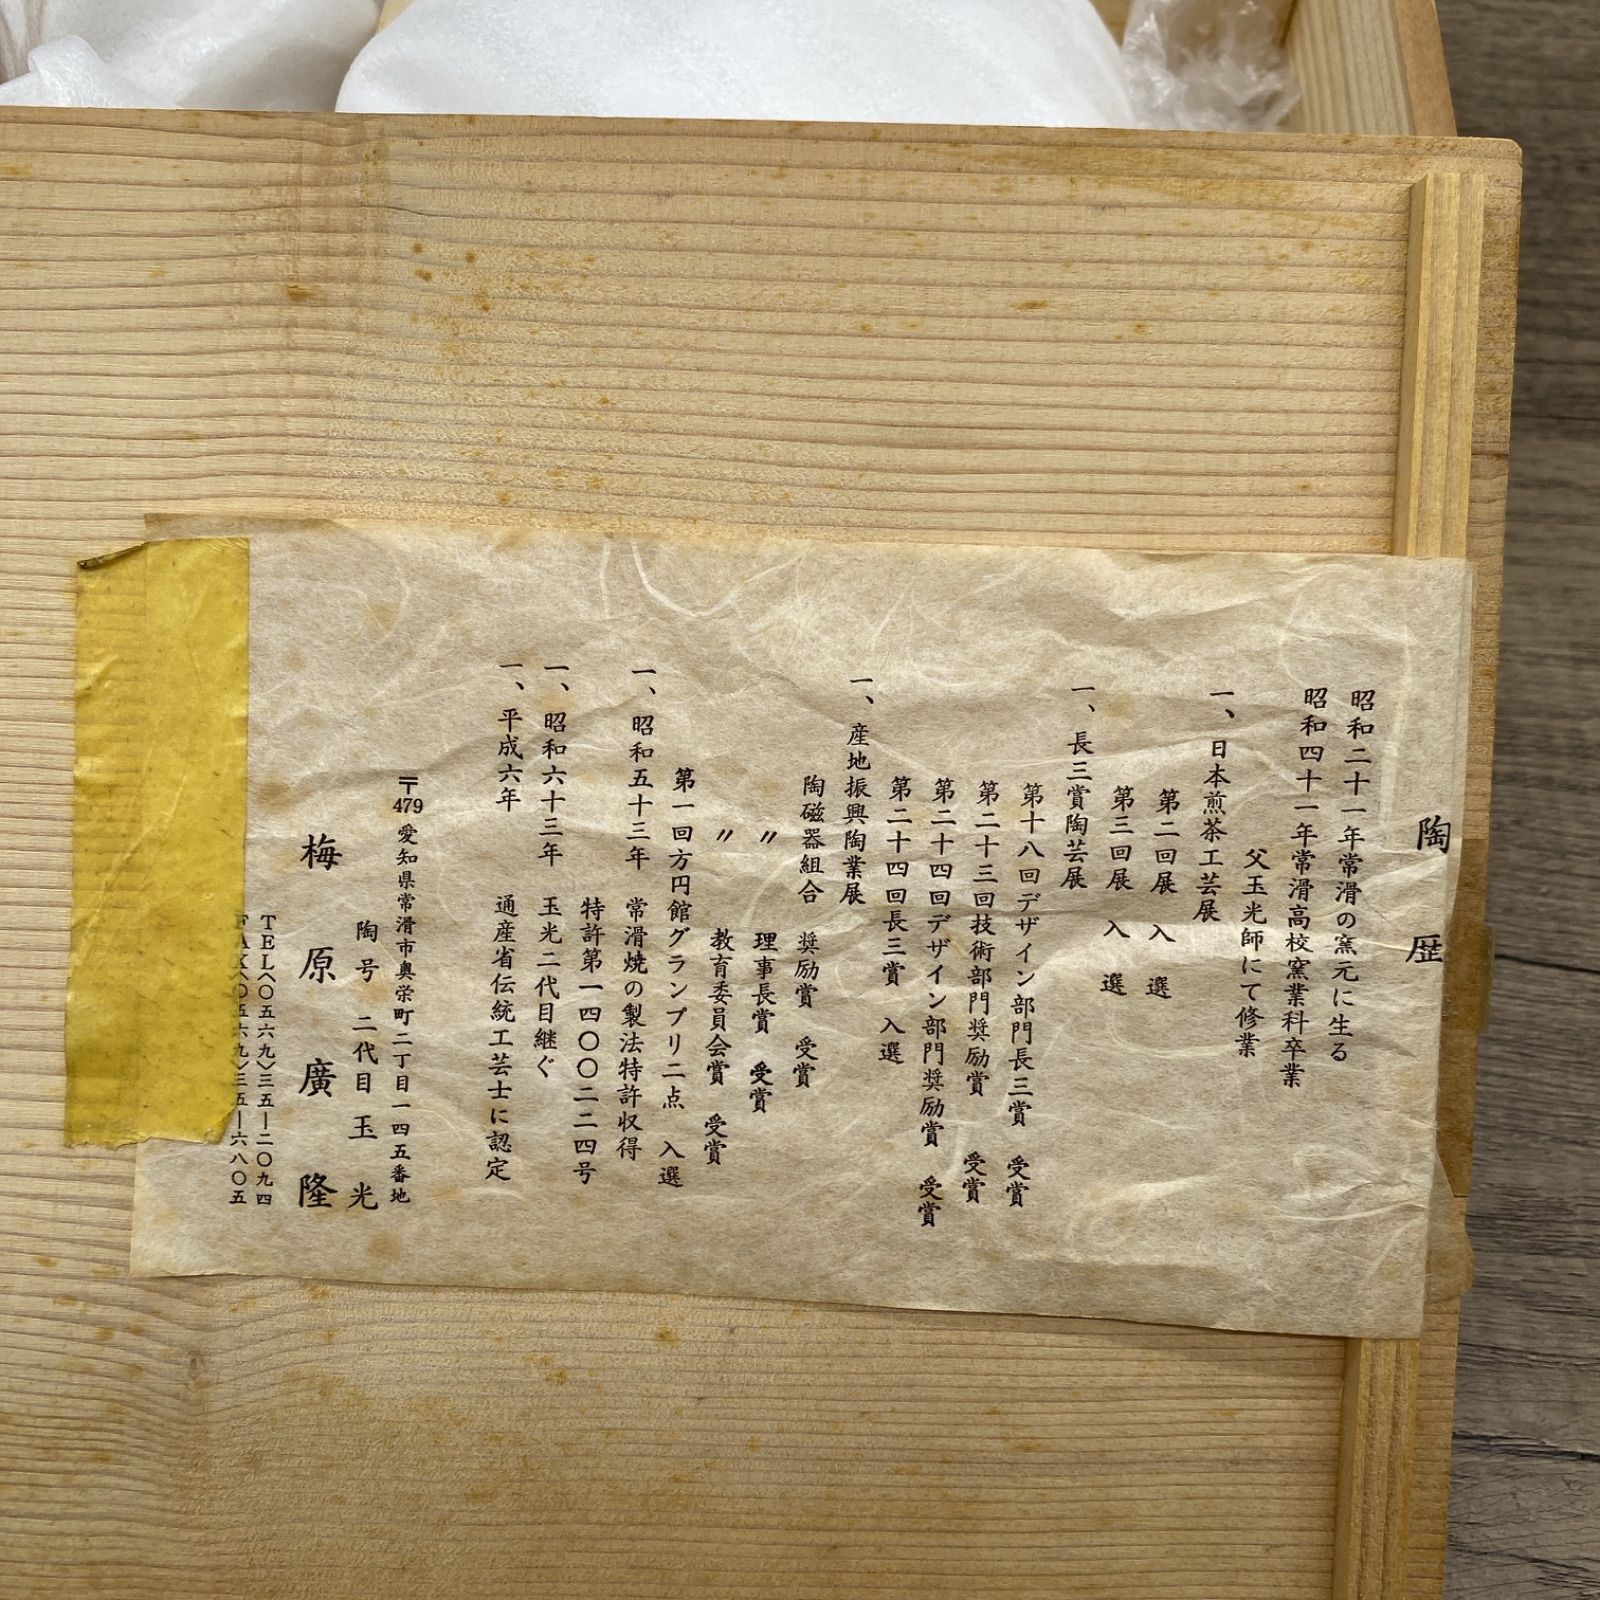 陶歴
昭和二十一年常滑の窯元に生る
昭和四十一年常滑高校窯業科卒業
父玉光師にて修業
一、日本煎茶工芸展
第二回展 入選
第三回展 入選
一、長三賞陶芸展
第十八回デザイン部門長三賞 受賞
第二十三回技術部門奨励賞 受賞
第二十四回デザイン部門奨励賞 受賞
第二十四回長三賞 入選
一、産地振興陶業展
陶磁器組合 奨励賞 受賞
〃 理事長賞 受賞
〃 教育委員会賞 受賞
第一回方円館グランプリ二点 入選
一、昭和五十三年 常滑焼の製法特許収得
特許第一四〇〇二二四号
一、昭和六十三年 玉光二代目継ぐ
一、平成六年 通産省伝統工芸士に認定
〒479 愛知県常滑市奥栄町二丁目一四五番地
陶号 二代目 玉光
梅原廣隆
TEL〈〇五六九〉三五―二〇九四
FAX〈〇五六九〉三五―六八〇五